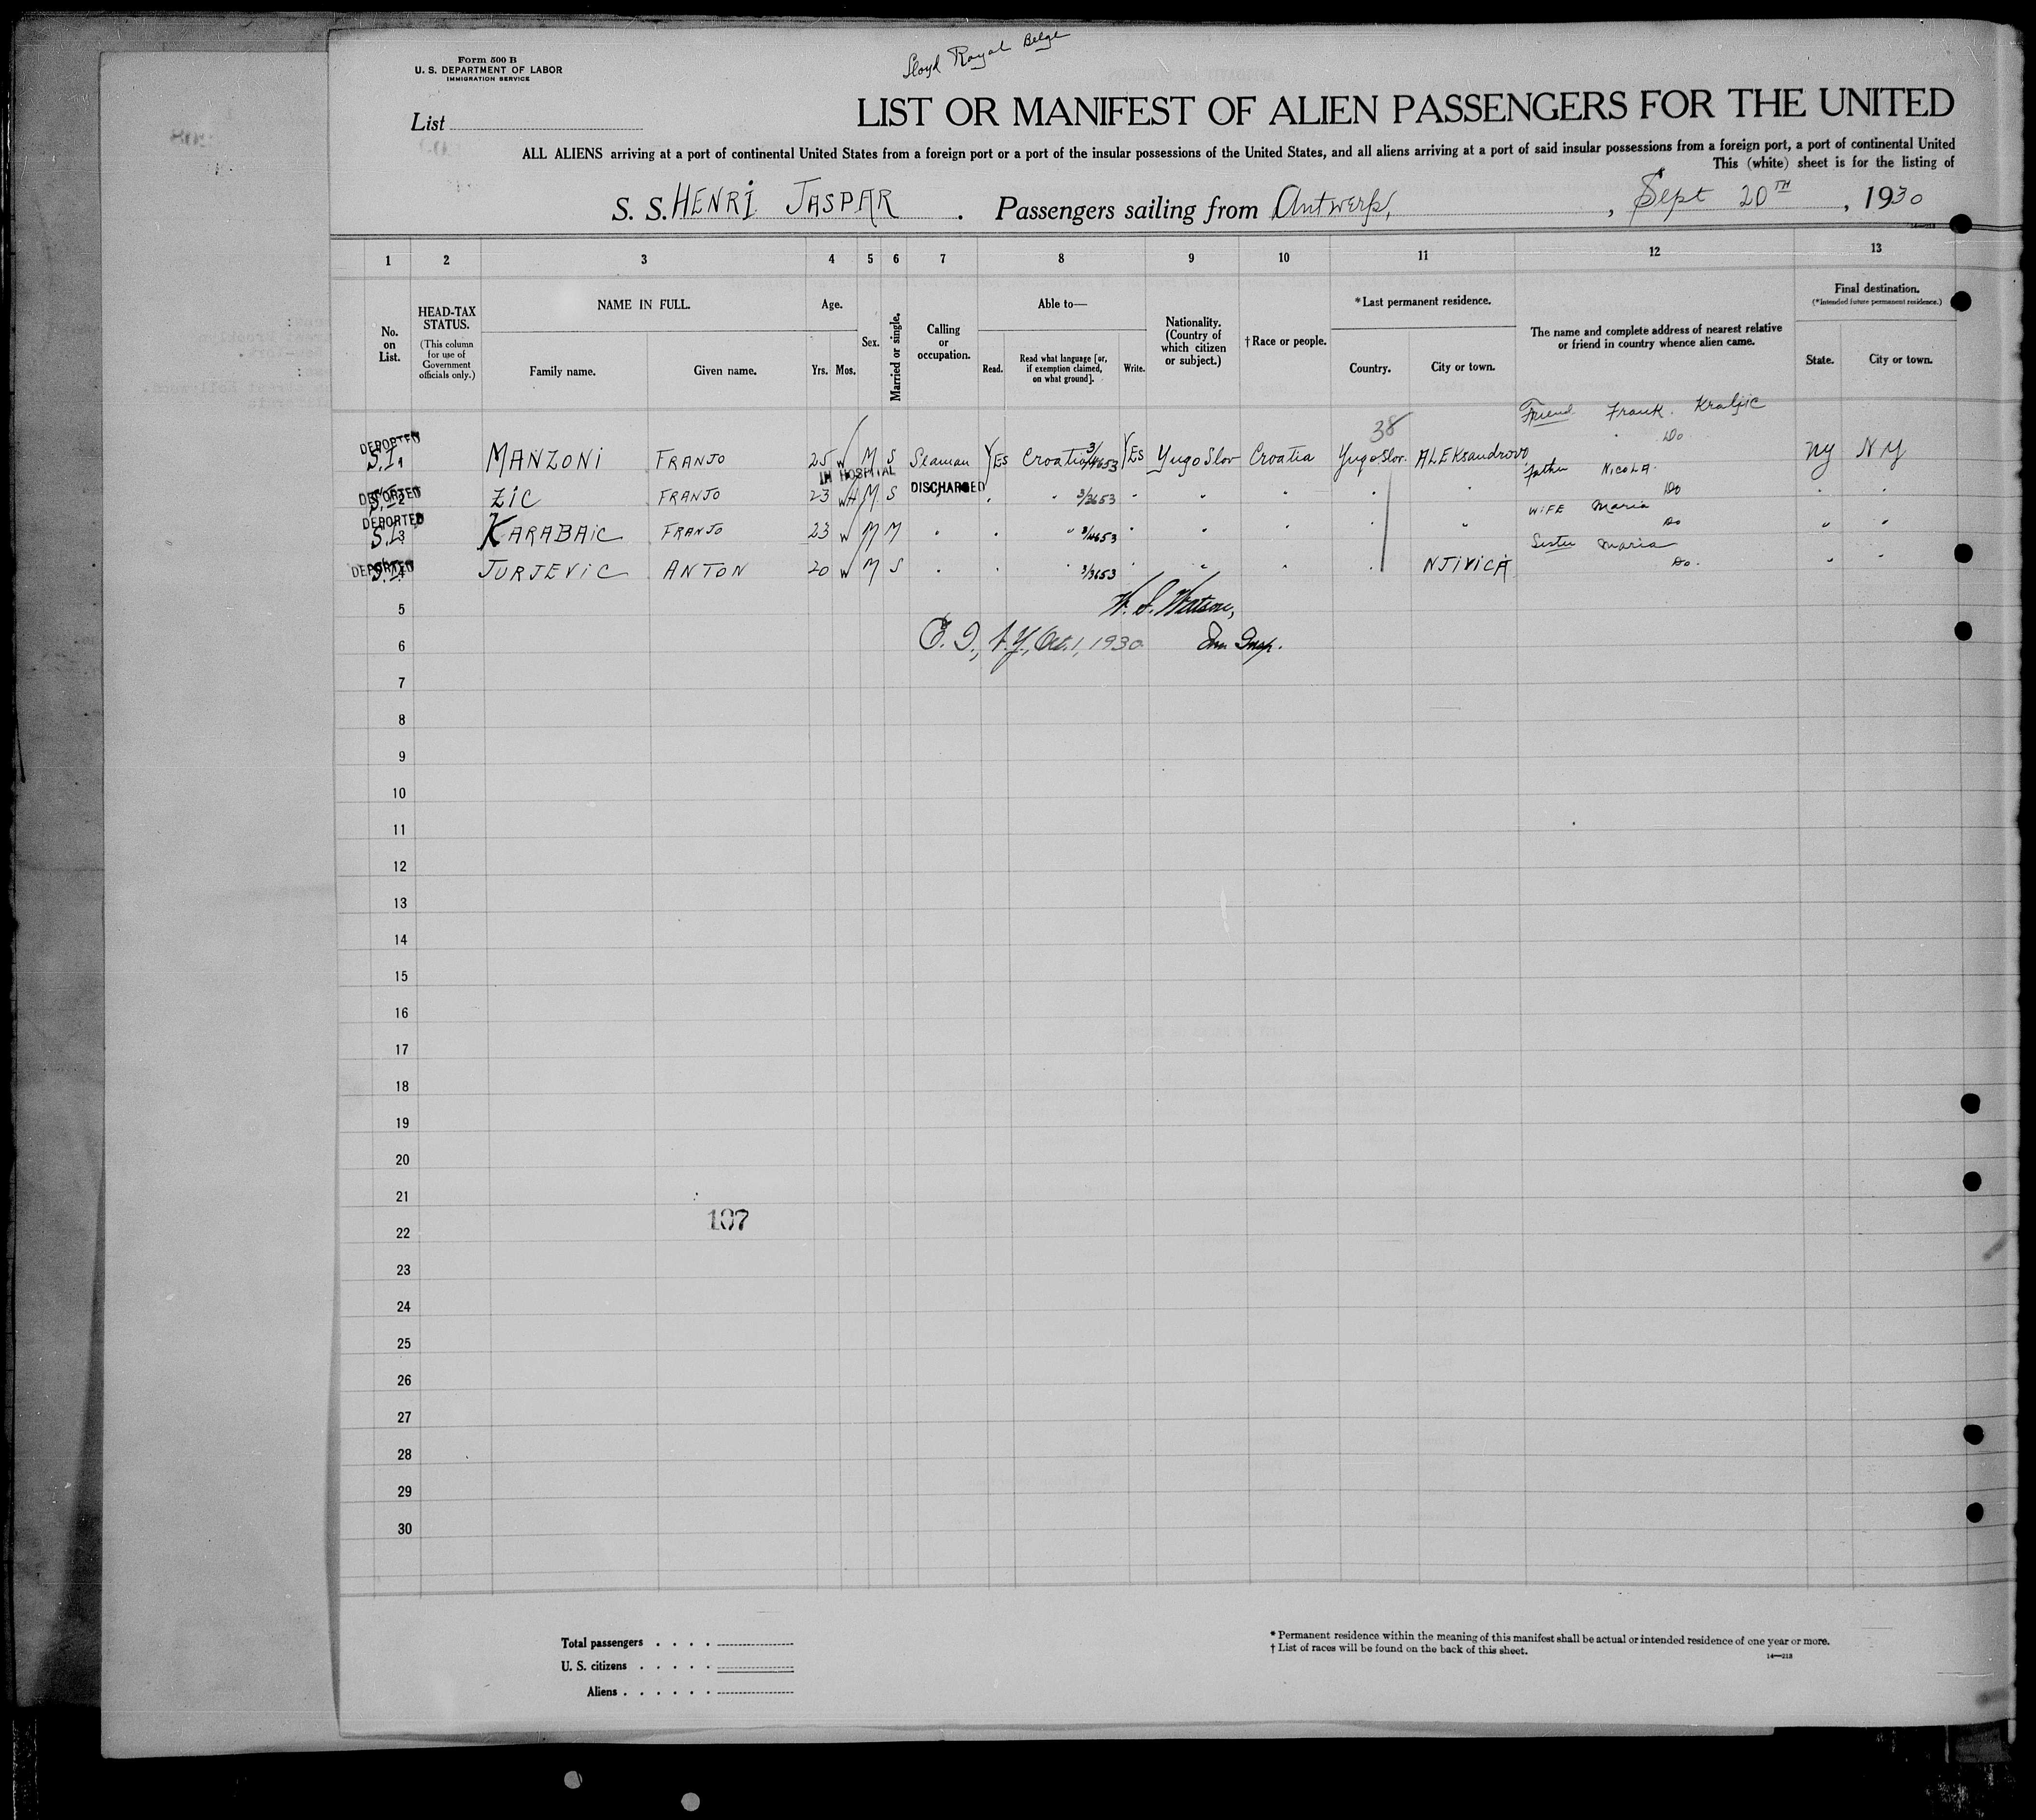 Lloyd Royal Belge
Form 500 B
U. S. DEPARTMENT OF LABOR
IMMIGRATION SERVICE
List
LIST OR MANIFEST OF ALIEN PASSENGERS FOR THE UNITED
ALL ALIENS arriving at a port of continental United States from a foreign port or a port of the insular possessions of the United States, and all aliens arriving at a port of said insular possessions from a foreign port, a port of continental United
This (white) sheet is for the listing of
S. S. HENRI JASPAR. Passengers sailing from Antwerp, , Sept 20TH, 1930
1 2 3 4 5 6 7 8 9 10 11 12 13
No. on List.
HEAD-TAX STATUS. (This column for use of Government officials only.)
NAME IN FULL.
Family name. Given name.
Age.
Yrs. Mos.
Sex.
Married or single.
Calling or occupation.
Able to—
Read. Read what language [or, if exemption claimed, on what ground]. Write.
Nationality. (Country of which citizen or subject.)
†Race or people.
*Last permanent residence.
Country. City or town.
The name and complete address of nearest relative or friend in country whence alien came.
Final destination.
(*Intended future permanent residence.)
State. City or town.
38 Friend Frank. Kraljic
DEPORTED Do
S.I. 1 MANZONI FRANJO 25 W M S Seaman YES Croatia 3/4653 YES YugoSlov Croatia YugoSlov. ALEKsandrovo NY NY
IN HOSPITAL DISCHARGED father NICOLA. Do
DEPORTED S.I. 2 ZIC FRANJO 23 WH M S " " 3/3653 " " " " " " "
WIFE Maria Do
DEPORTED S.I. 3 KARABAIC FRANJO 23 W M M " " " 3/4653 " " " " " " "
Sister Maria Do.
DEPORTED S.I. 4 JURJEVIC ANTON 20 W M S " " " 3/3653 " " " " NJIVICA " "
5 W. S. Watson,
6 E. I., N.Y., Oct. 1, 1930 Imm Insp.
7
8
9
10
11
12
13
14
15
16
17
18
19
20
21
107
22
23
24
25
26
27
28
29
30
Total passengers . . . .
U. S. citizens . . . . .
Aliens . . . . . .
* Permanent residence within the meaning of this manifest shall be actual or intended residence of one year or more.
† List of races will be found on the back of this sheet.
14—213